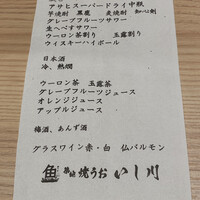 アサヒスーパードライ中瓶
芋焼酎 黒霧 麦焼酎 知心剣
グレープフルーツサワー
生へべすサワー
ウーロン茶割り 玉露割り
ウィスキーハイボール
日本酒
冷、熱燗
ウーロン茶 玉露茶
グレープフルーツジュース
オレンジジュース
アップルジュース
梅酒、あんず酒
グラスワイン赤・白 仏バルモン
魚 串焼 焼うお いし川